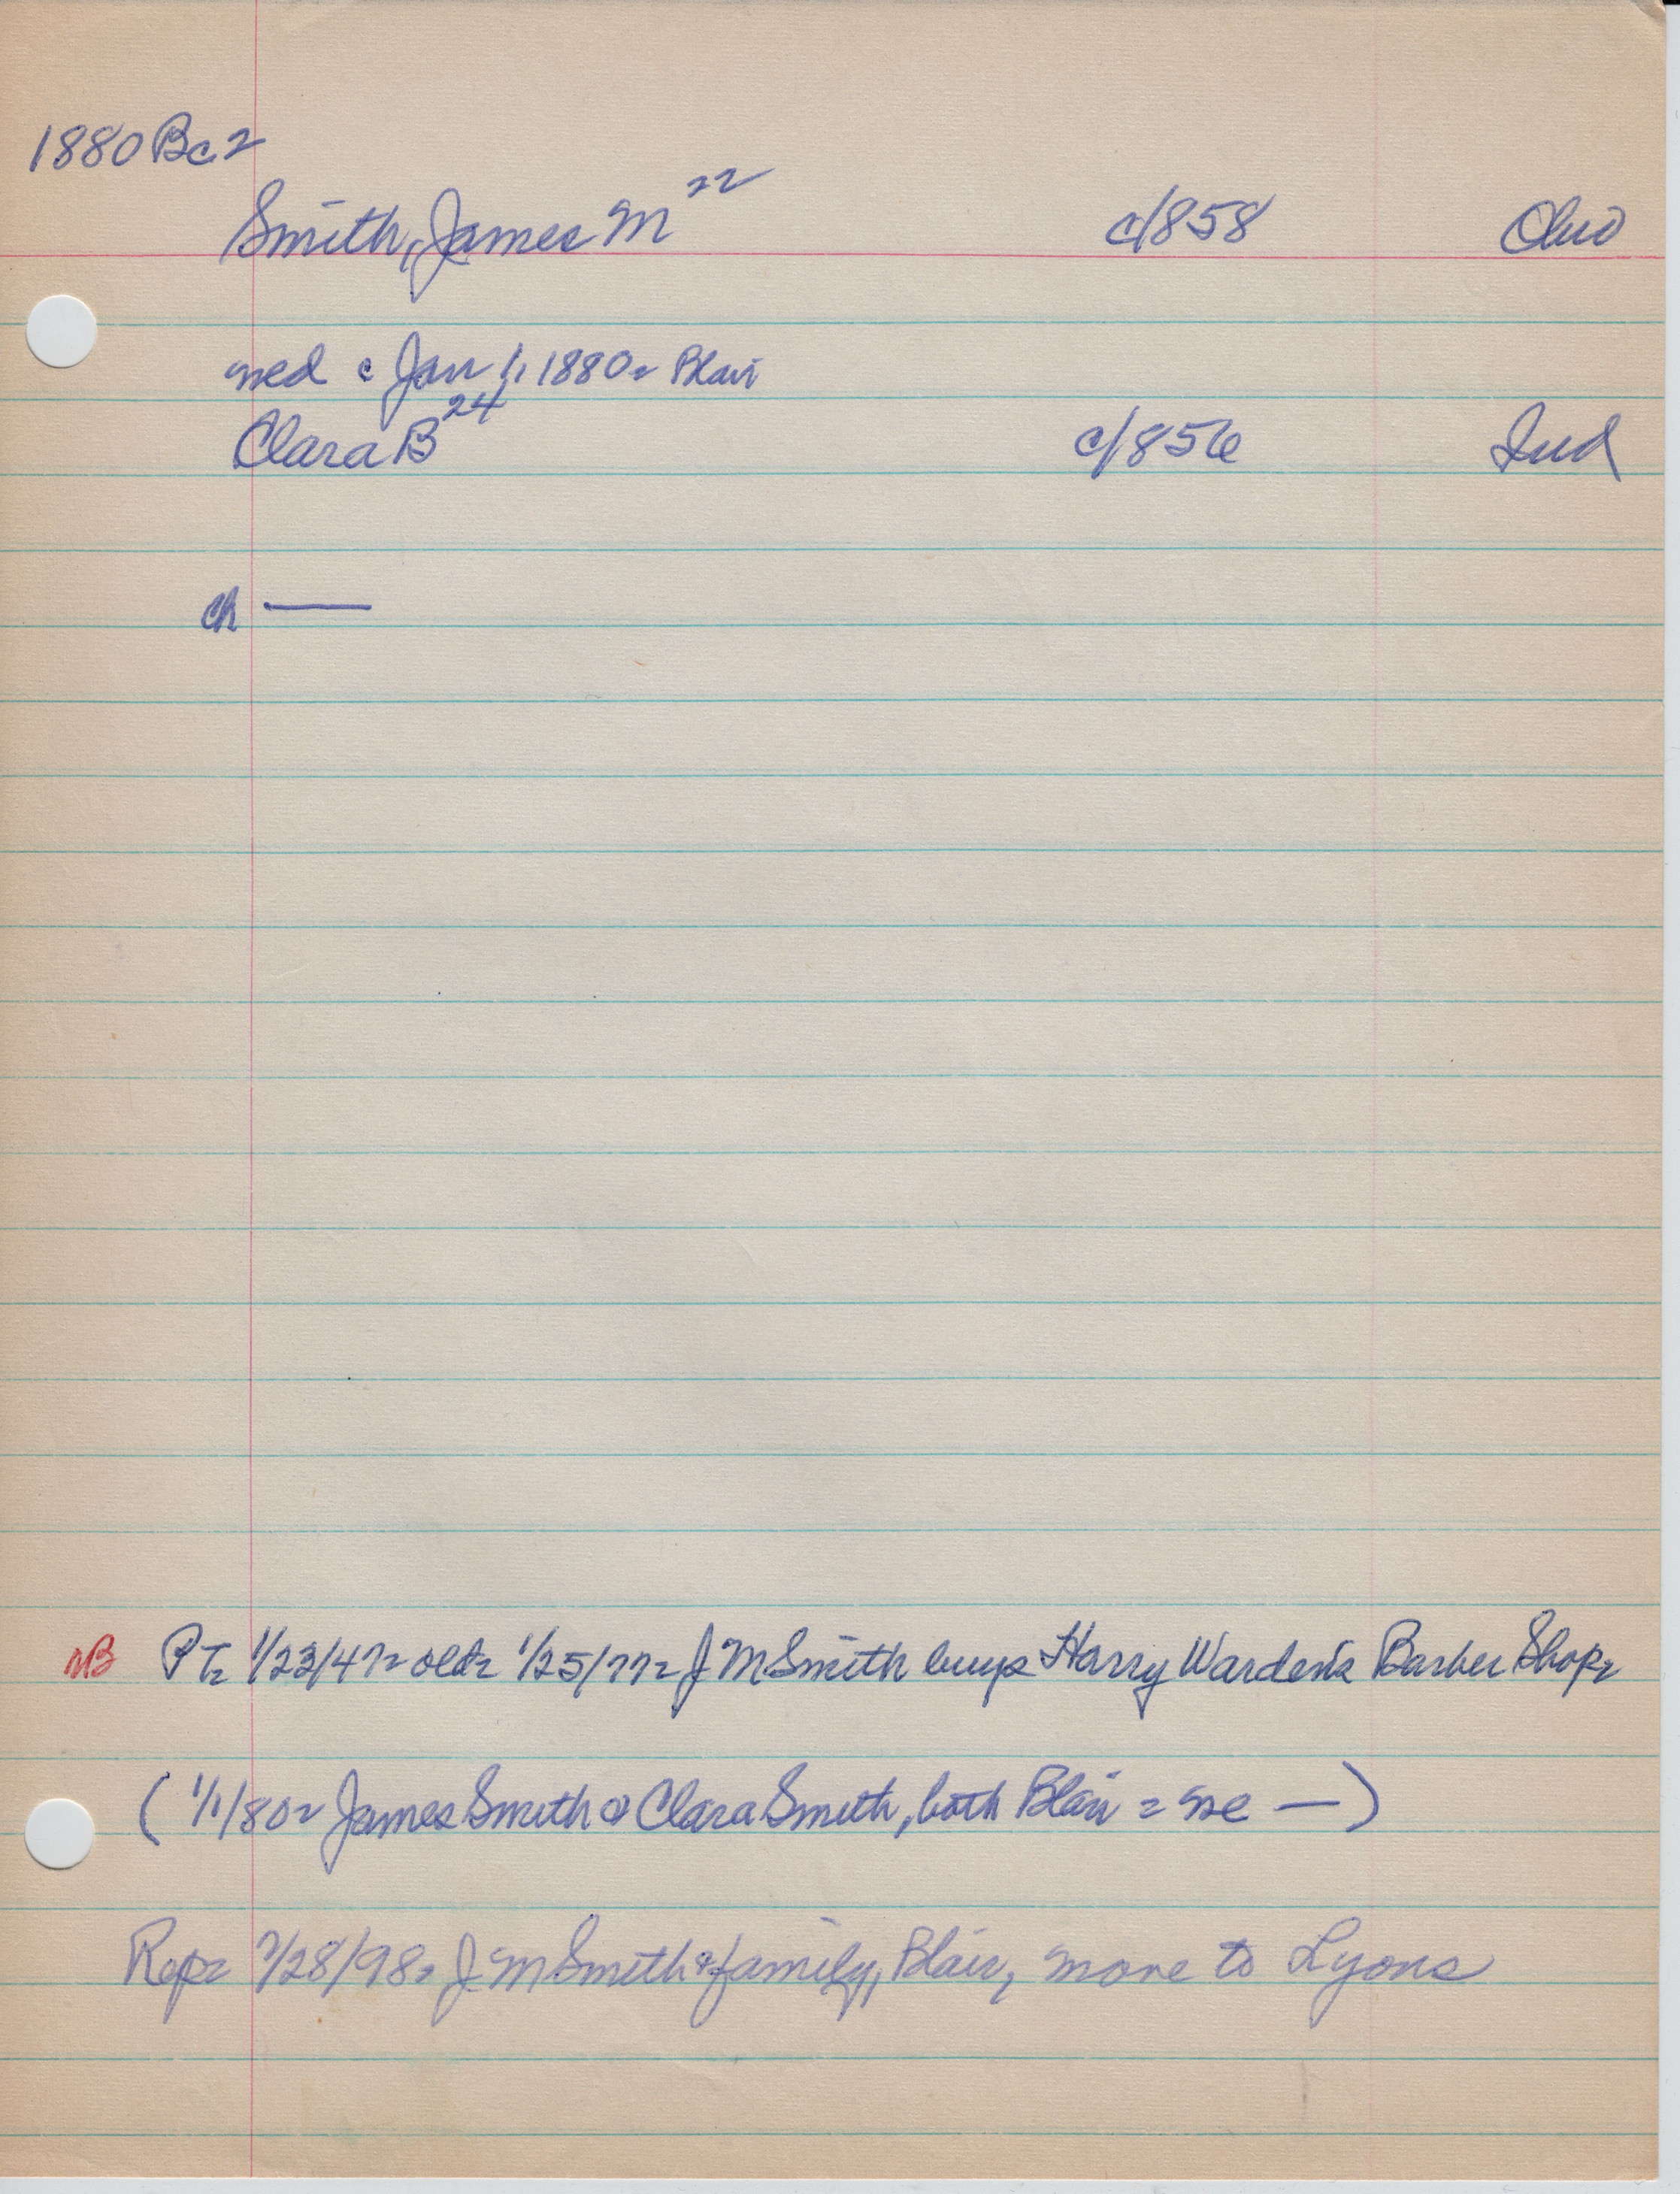 1880 Bc 2
Smith, James M 22 c1858 Ohio
med c Jan 1, 1880 - Blair
Clara B 24 c1856 Ind
ch —
NB PT- 1/23/47- old- 1/25/77- J M Smith buys Harry Warden's Barber Shop-
(1/1/80- James Smith & Clara Smith, both Blair - me —)
Rep- 7/28/98- J M Smith & family, Blair, move to Lyons